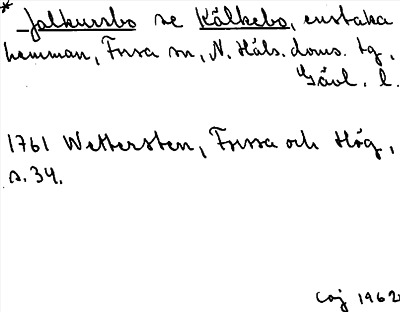 * Jalkursbo se Kälkebo, enstaka
hemman, Forsa sn, N. Häls. doms. tg,
Gävl. l.
1761 Wettersten, Forssa och Hög,
s. 34.
1962